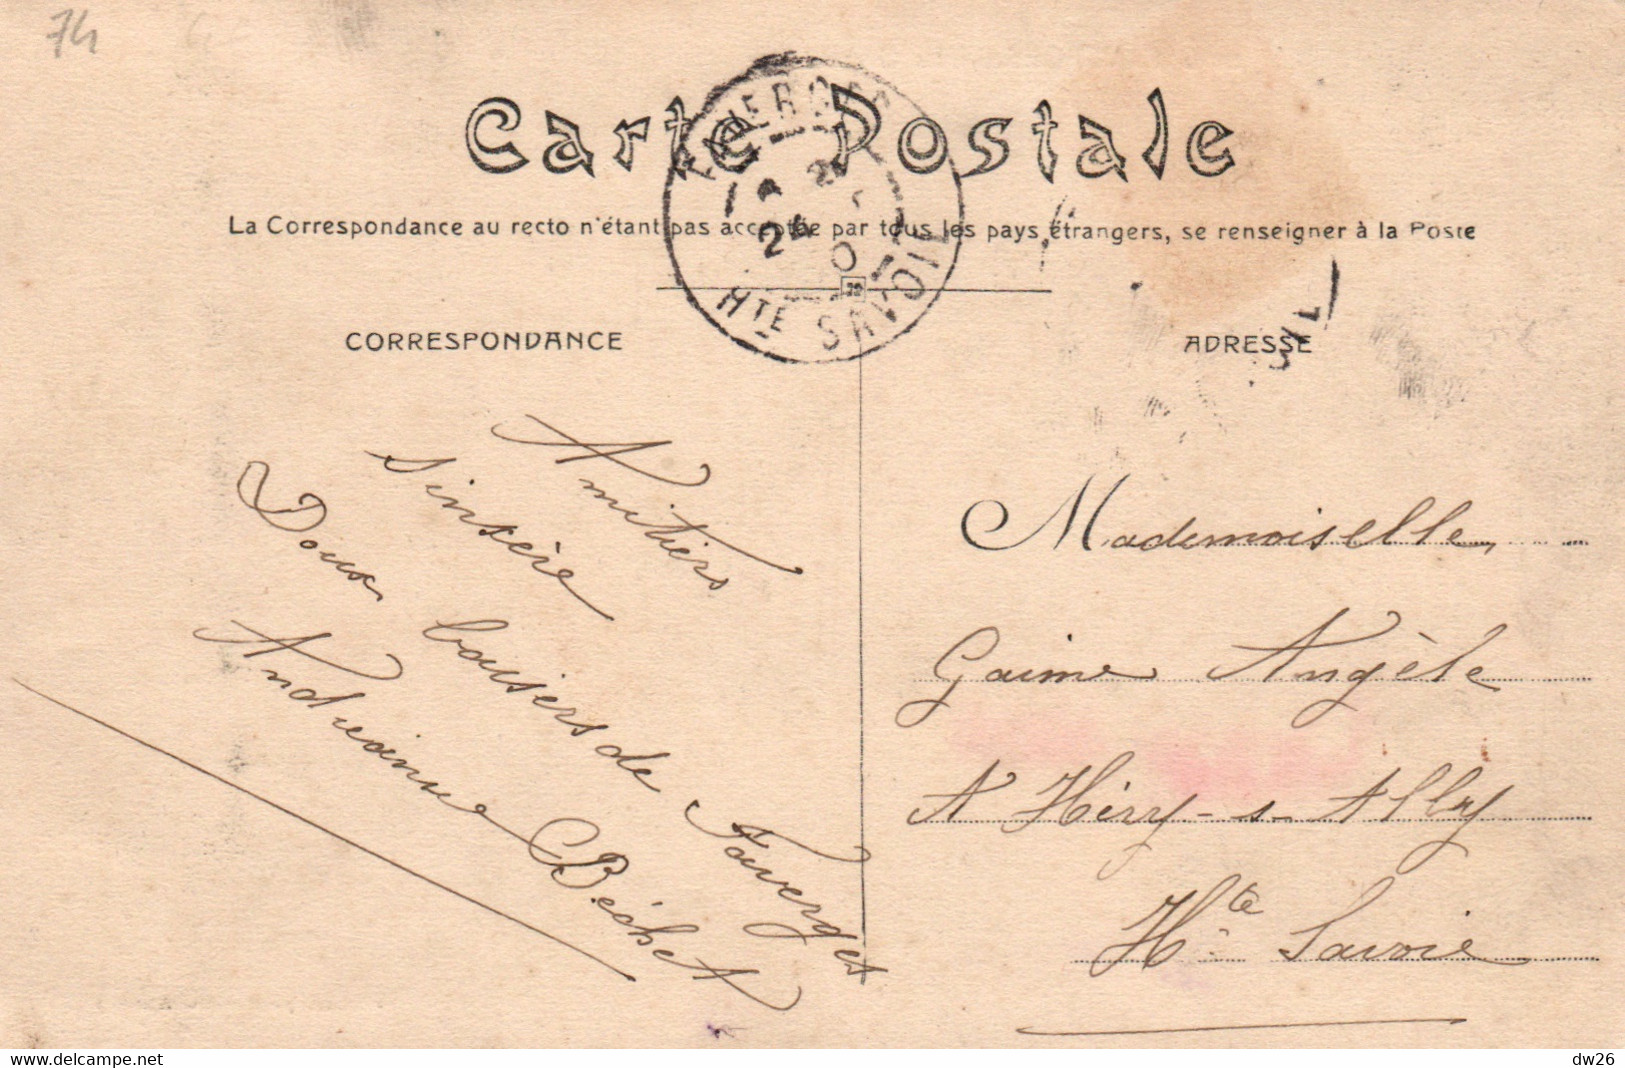 74
Carte Postale
FAVERGES
24
Hte SAVOIE
La Correspondance au recto n'étant pas acceptée par tous les pays étrangers, se renseigner à la Poste
CORRESPONDANCE
ADRESSE
Amitiers
sinsère
Doux baisers de Faverges
Andréainne Béchet
Mademoiselle
Gaime Angèle
A Héry-s-Allby
Hte Savoie
delcampe.net
dw26